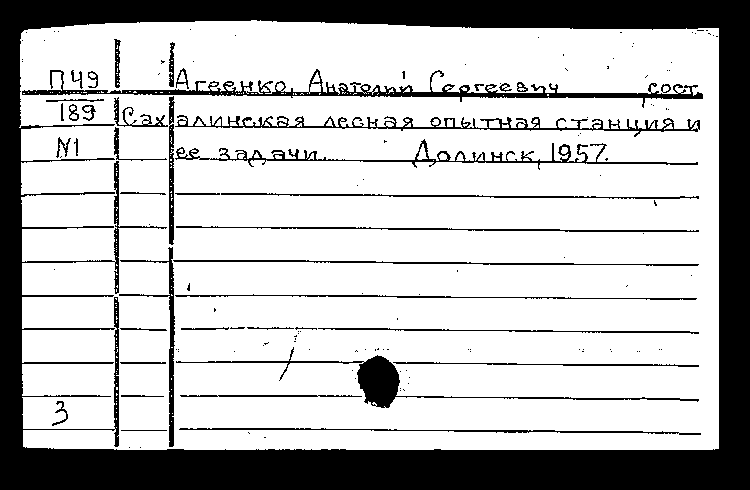 П49 Агеенко, Анатолий Сергеевич сост.
189 Сахалинская лесная опытная станция и
N1 ее задачи. Долинск, 1957.
3